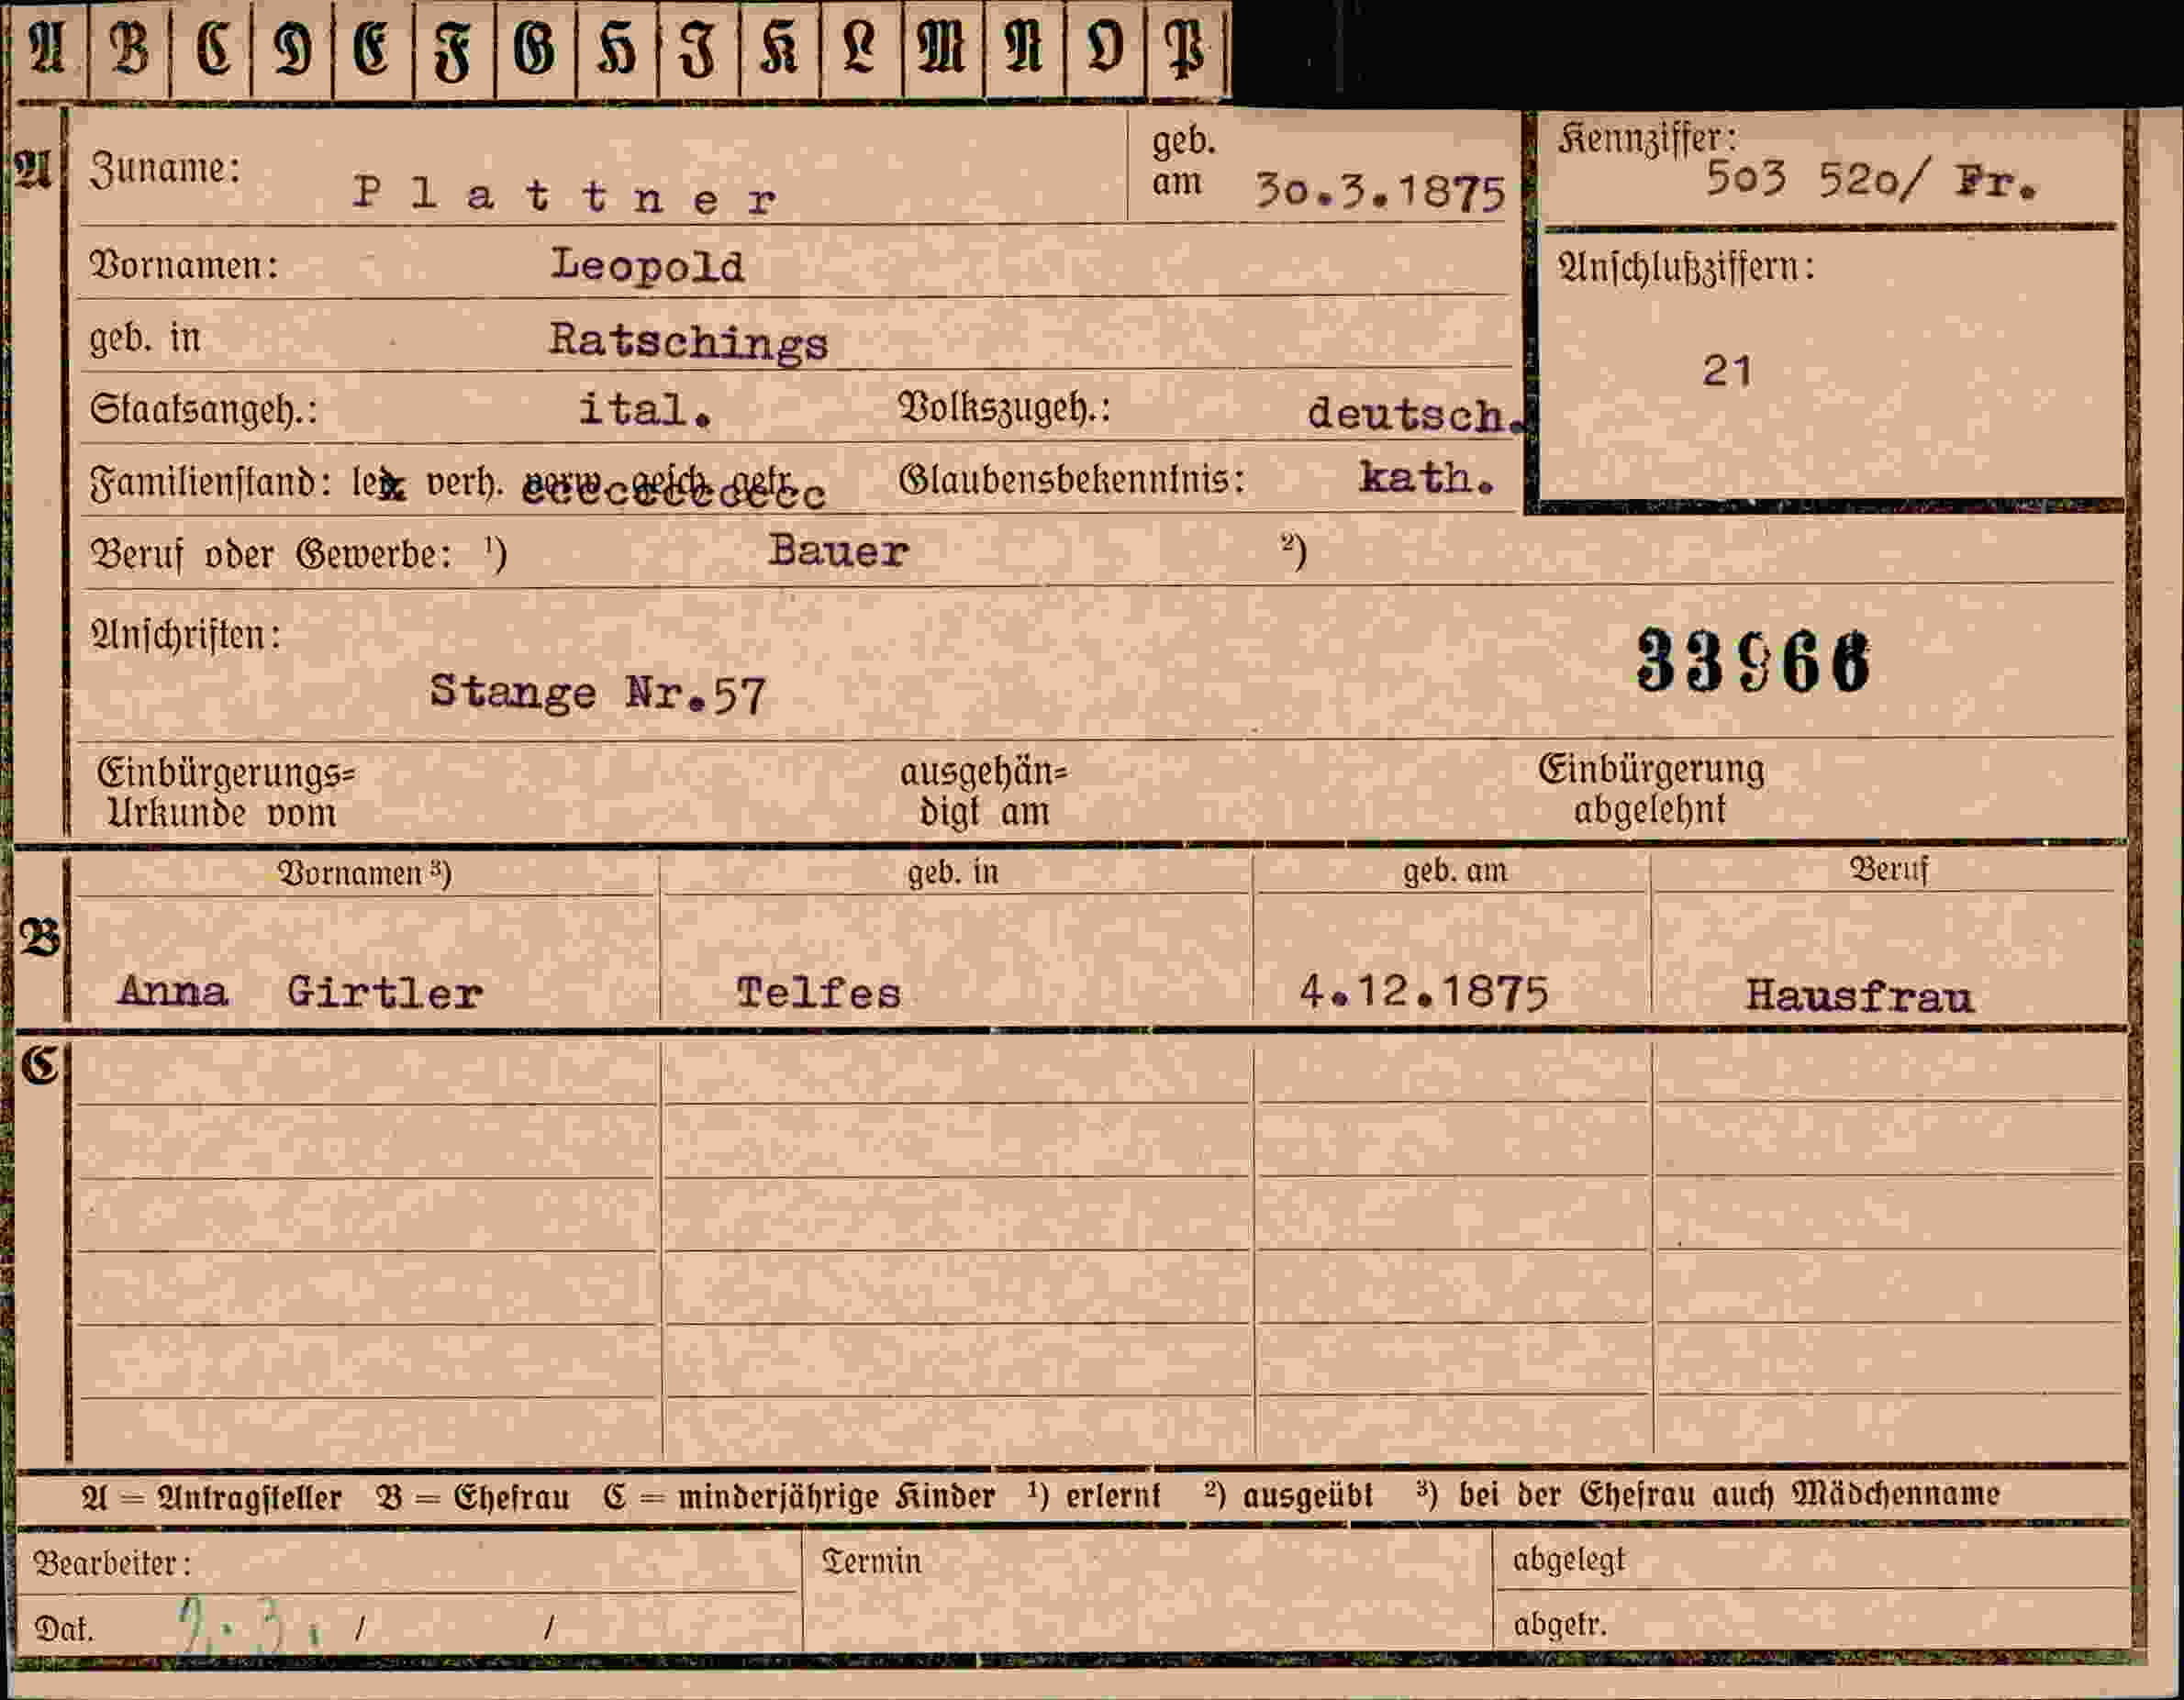 A B C D E F G H I K L M N O P
A Zuname: Plattner geb. am 30.3.1875 Kennziffer: 503 520/ Fr.
Vornamen: Leopold Anschlußziffern:
geb. in Ratschings 21
Staatsangeh.: ital. Volkszugeh.: deutsch.
Familienstand: led. verh. verw. gesch. getr. Glaubensbekenntnis: kath.
Beruf oder Gewerbe: ¹) Bauer ²)
Anschriften: 33966
Stange Nr.57
Einbürgerungs= ausgehän= Einbürgerung
Urkunde vom digt am abgelehnt
Vornamen ³) geb. in geb. am Beruf
B
Anna Girtler Telfes 4.12.1875 Hausfrau
C
A = Antragsteller B = Ehefrau C = minderjährige Kinder ¹) erlernt ²) ausgeübt ³) bei der Ehefrau auch Mädchenname
Bearbeiter: Termin abgelegt
Dat. 2.3. / / abgetr.